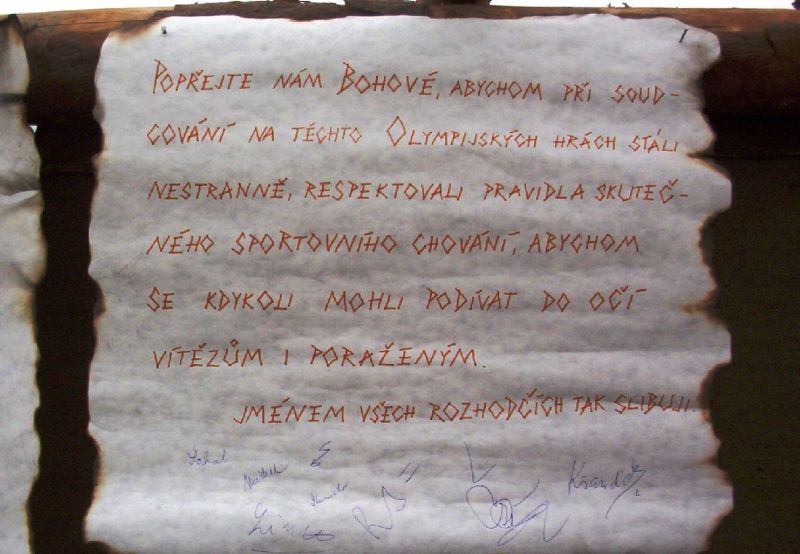 Popřejte nám Bohové, abychom při soud-
cování na těchto Olympijských hrách stáli
nestranně, respektovali pravidla skuteč-
ného sportovního chování, abychom
se kdykoli mohli podívat do očí
vítězům i poraženým.
Jménem všech rozhodčích tak slibuji.